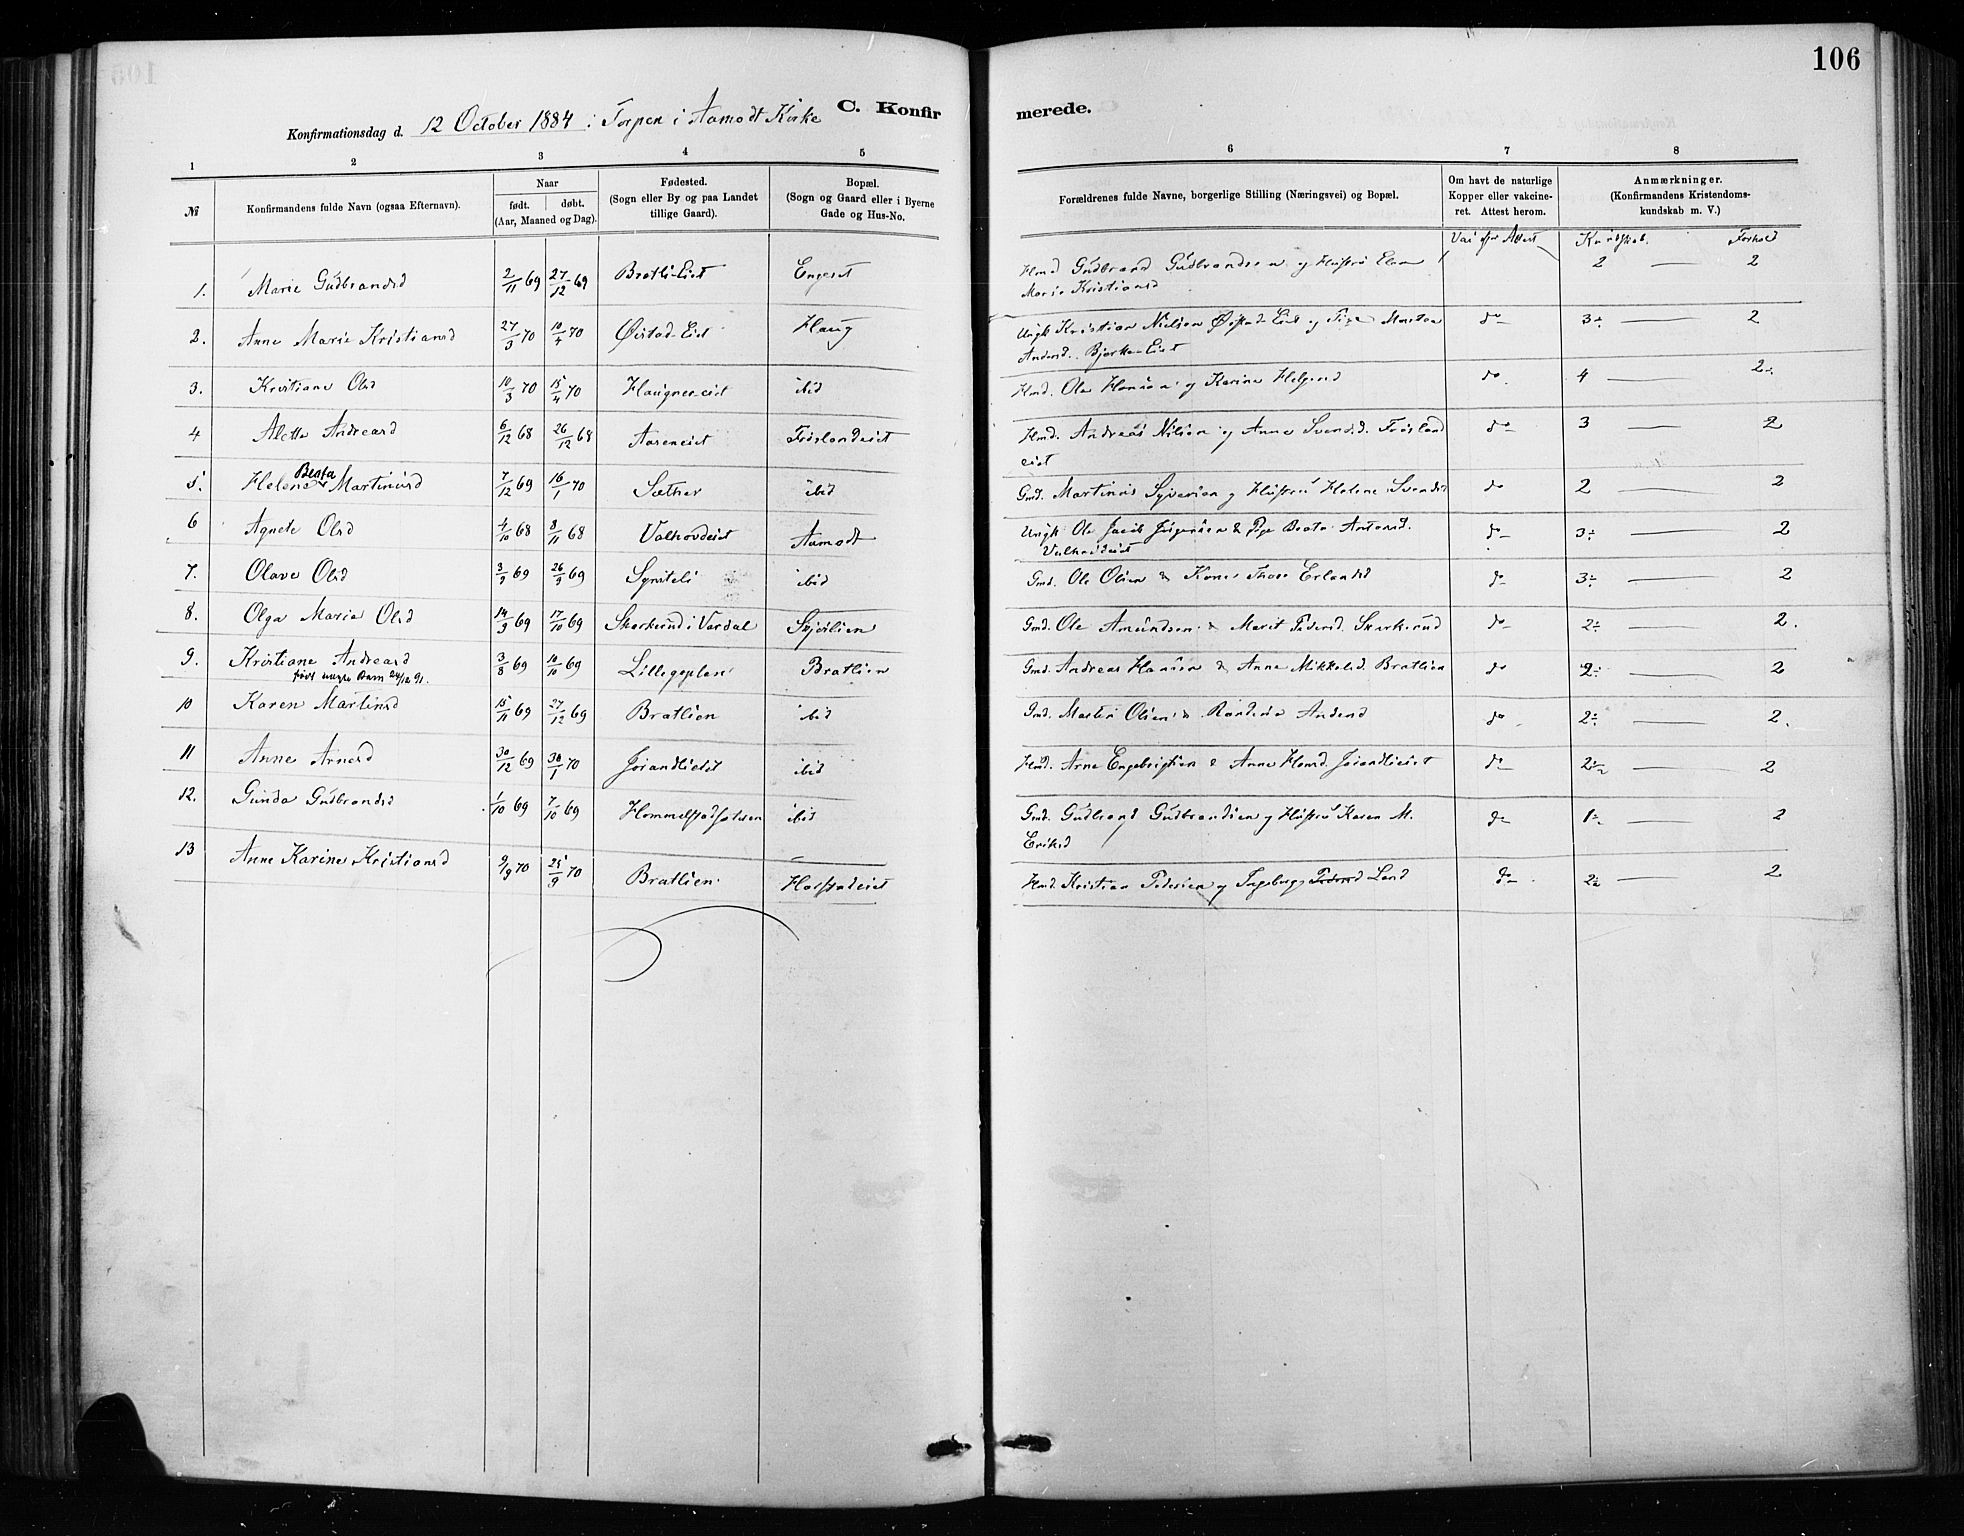 106
Konfirmationsdag d. 12 October 1884 i Torpen i Aamodt Kirke
C. Konfirmerede.
1 2 3 4 5 6 7 8
№
Konfirmandens fulde Navn (ogsaa Efternavn).
Naar
født. døbt.
(Aar, Maaned og Dag).
Fødested.
(Sogn eller By og paa Landet
tillige Gaard).
Bopæl.
(Sogn og Gaard eller i Byerne
Gade og Hus-No.
Forældrenes fulde Navne, borgerlige Stilling (Næringsvei) og Bopæl.
Om havt de naturlige
Kopper eller vakcine-
ret. Attest herom.
Anmærkninger.
(Konfirmandens Kristendoms-
kundskab m. V.)
Attest Kundskab. Forhold
1. Marie Gudbrandsd 2/11 69 27/12 69 Bratli-Eiet Engeset Hmd Gudbrand Gudbrandsen og Hustru
Marie Kristiansd 2 — 2
2. Anne Marie Kristiansd 27/3 70 10/4 70 Øistad-Eiet Haug Ungk Kristian Nielsen Øistad Eiet og Pige Marthe
Andersd. Bjerke-Eiet do 3 — 2
3. Kristiane Olsd 10/3 70 15/4 70 Haugnereiet ibid Hmd. Ole Hansen og Karine Helgesd do 4 — 2
4 Alette Andreasd 6/12 68 26/12 68 Aaseneiet Frøslandeiet Hmd. Andreas Nilsen og Anne Svensd. Frøsland
eiet do 3 — 2
5. Helene Beata Martinusd 7/12 69 16/1 70 Sæther ibid Gmd. Martinus Syversen og Hustru Helene Svensd do 2 — 2
6 Agnete Olsd 4/10 68 8/11 68 Valhovdeiet Aamodt Ungk. Ole Jacob Jørgensen & Pige Beata Antonsd.
Valhovdeiet do 3 — 2
7. Olave Olsd 3/9 69 26/9 69 Synsteli ibid Gmd. Ole Olsen & Kone Thore Erlandsd do 3 — 2
8. Olga Marie Olsd 14/9 69 17/10 69 Skarkerud i Vardal Gmd. Ole Amundsen & Marit Pedersd. Skarkerud do 2 — 2.
9. Kristiane Andreasd 3/8 69 10/10 69 Lillegoplen Bratlien Gmd. Andreas Hansen & Anne Mikkelsd. Bratlien do 2 — 2
født uægte Barn 24/12 91.
10 Karen Martinsd 15/11 69 27/12 69 Bratlien ibid Gmd. Martin Olsen & Andersd do 2 — 2.
11 Anne Arnesd 30/12 69 30/1 70 Jørandlieiet ibid Hmd. Arne Engebrigtsen & Anne Hansd. Jørandlieiet do 2 — 2
12. Gunda Gudbrandsd 1/10 69 7/10 69 ibid Gmd. Gudbrand Gudbrandsen og Hustru Karen M.
Eriksd do 1 — 2
13 Anne Karine Kristiansd 9/9 70 25/9 70 Bratlien Hmd. Kristian Pedersen og Ingeborg Pedersd Land do 2 — 2